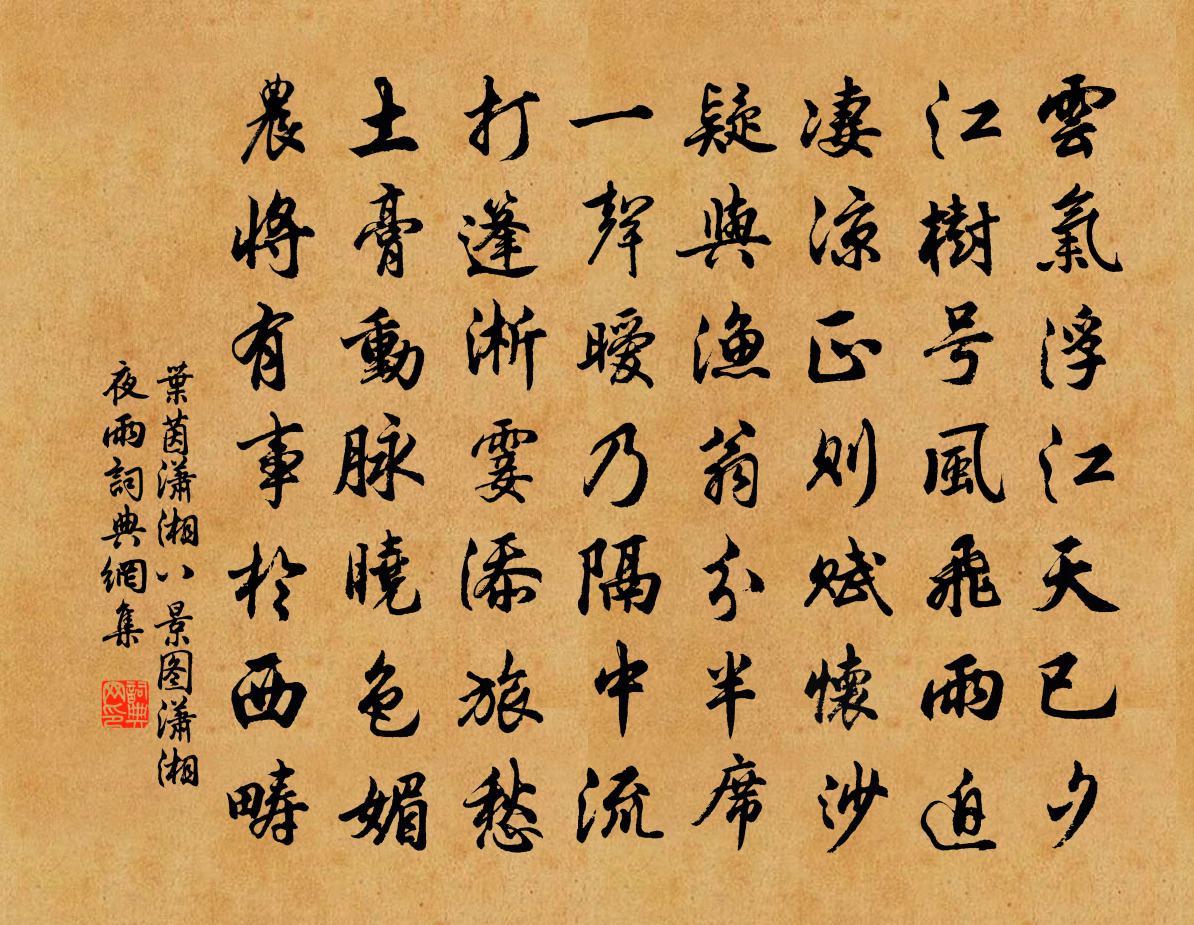 雲氣浮江天已夕
江樹号風飛雨迫
凄涼正則賦懷沙
疑與漁翁分半席
一聲曖乃隔中流
打篷淅霎添旅愁
土膏動脉曉色媚
農將有事於西疇
葉茵瀟湘八景图瀟湘
夜雨詞典網集
詞典
网印